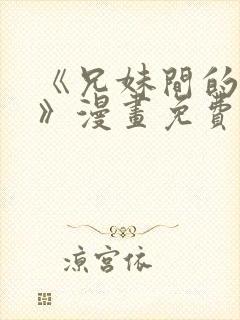 《兄妹間的
》漫畫免費
涼宮依